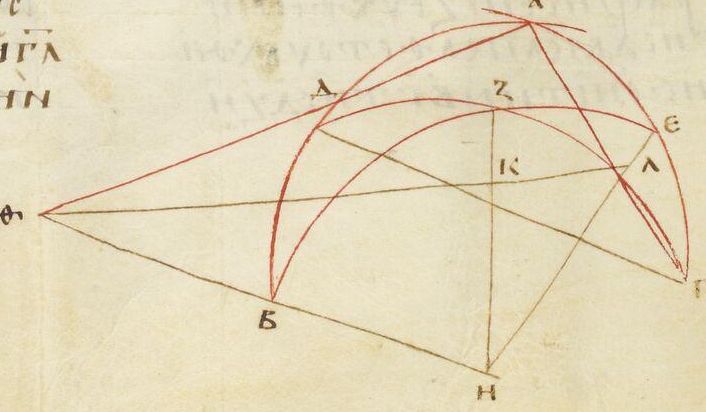 ΗΓΛ
ΗΝ
Α
Δ
Ζ
Ε
Κ
Λ
Θ
Γ
Β
Η